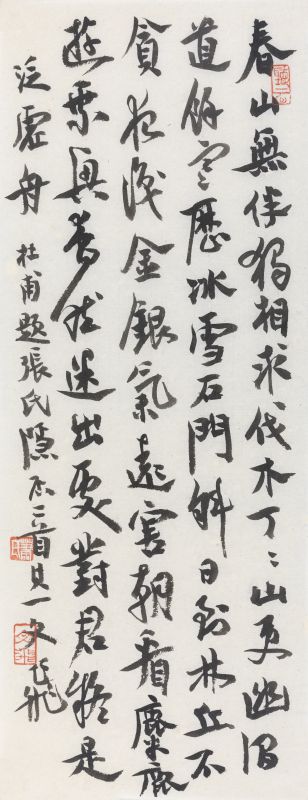 春山無伴獨相求伐木丁丁山更幽澗
道餘寒歷冰雪石門斜日到林丘不
貪夜識金銀氣遠害朝看麋鹿
遊乘興杳然迷出處對君疑是
泛虛舟 杜甫題張氏隱居二首其一